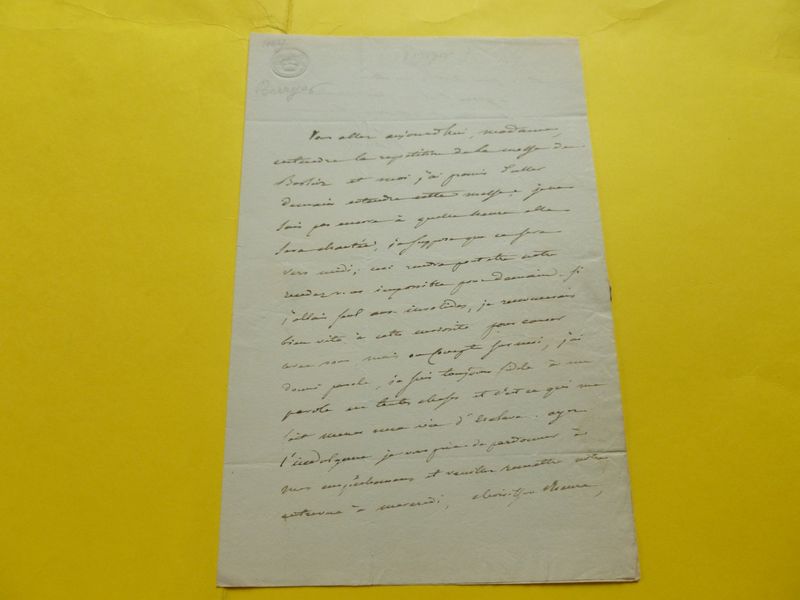 Berryer
Vous allez aujourd'hui, madame,
entendre la repetition de la messe de
Berlioz et moi j'ai promis d'aller
demain entendre cette messe. je ne
sais pas encore à quelle heure elle
sera chantée, je suppose que ce sera
vers midi; ceci rendra peut etre notre
rendez vous impossible pour demain. Si
j'allais seul aux invalides, je renoncerais
bien vite à cette curiosité pour causer
avec vous mais on compte sur moi, j'ai
donné parole, je suis toujours fidèle à ma
parole en toutes choses et c'est ce qui me
fait mener une vie d'Esclave. ayez
l'indulgence je vous prie de pardonner à
mes empêchemens et veuillez remettre notre
entrevue à mercredi, choisissez l'heure,